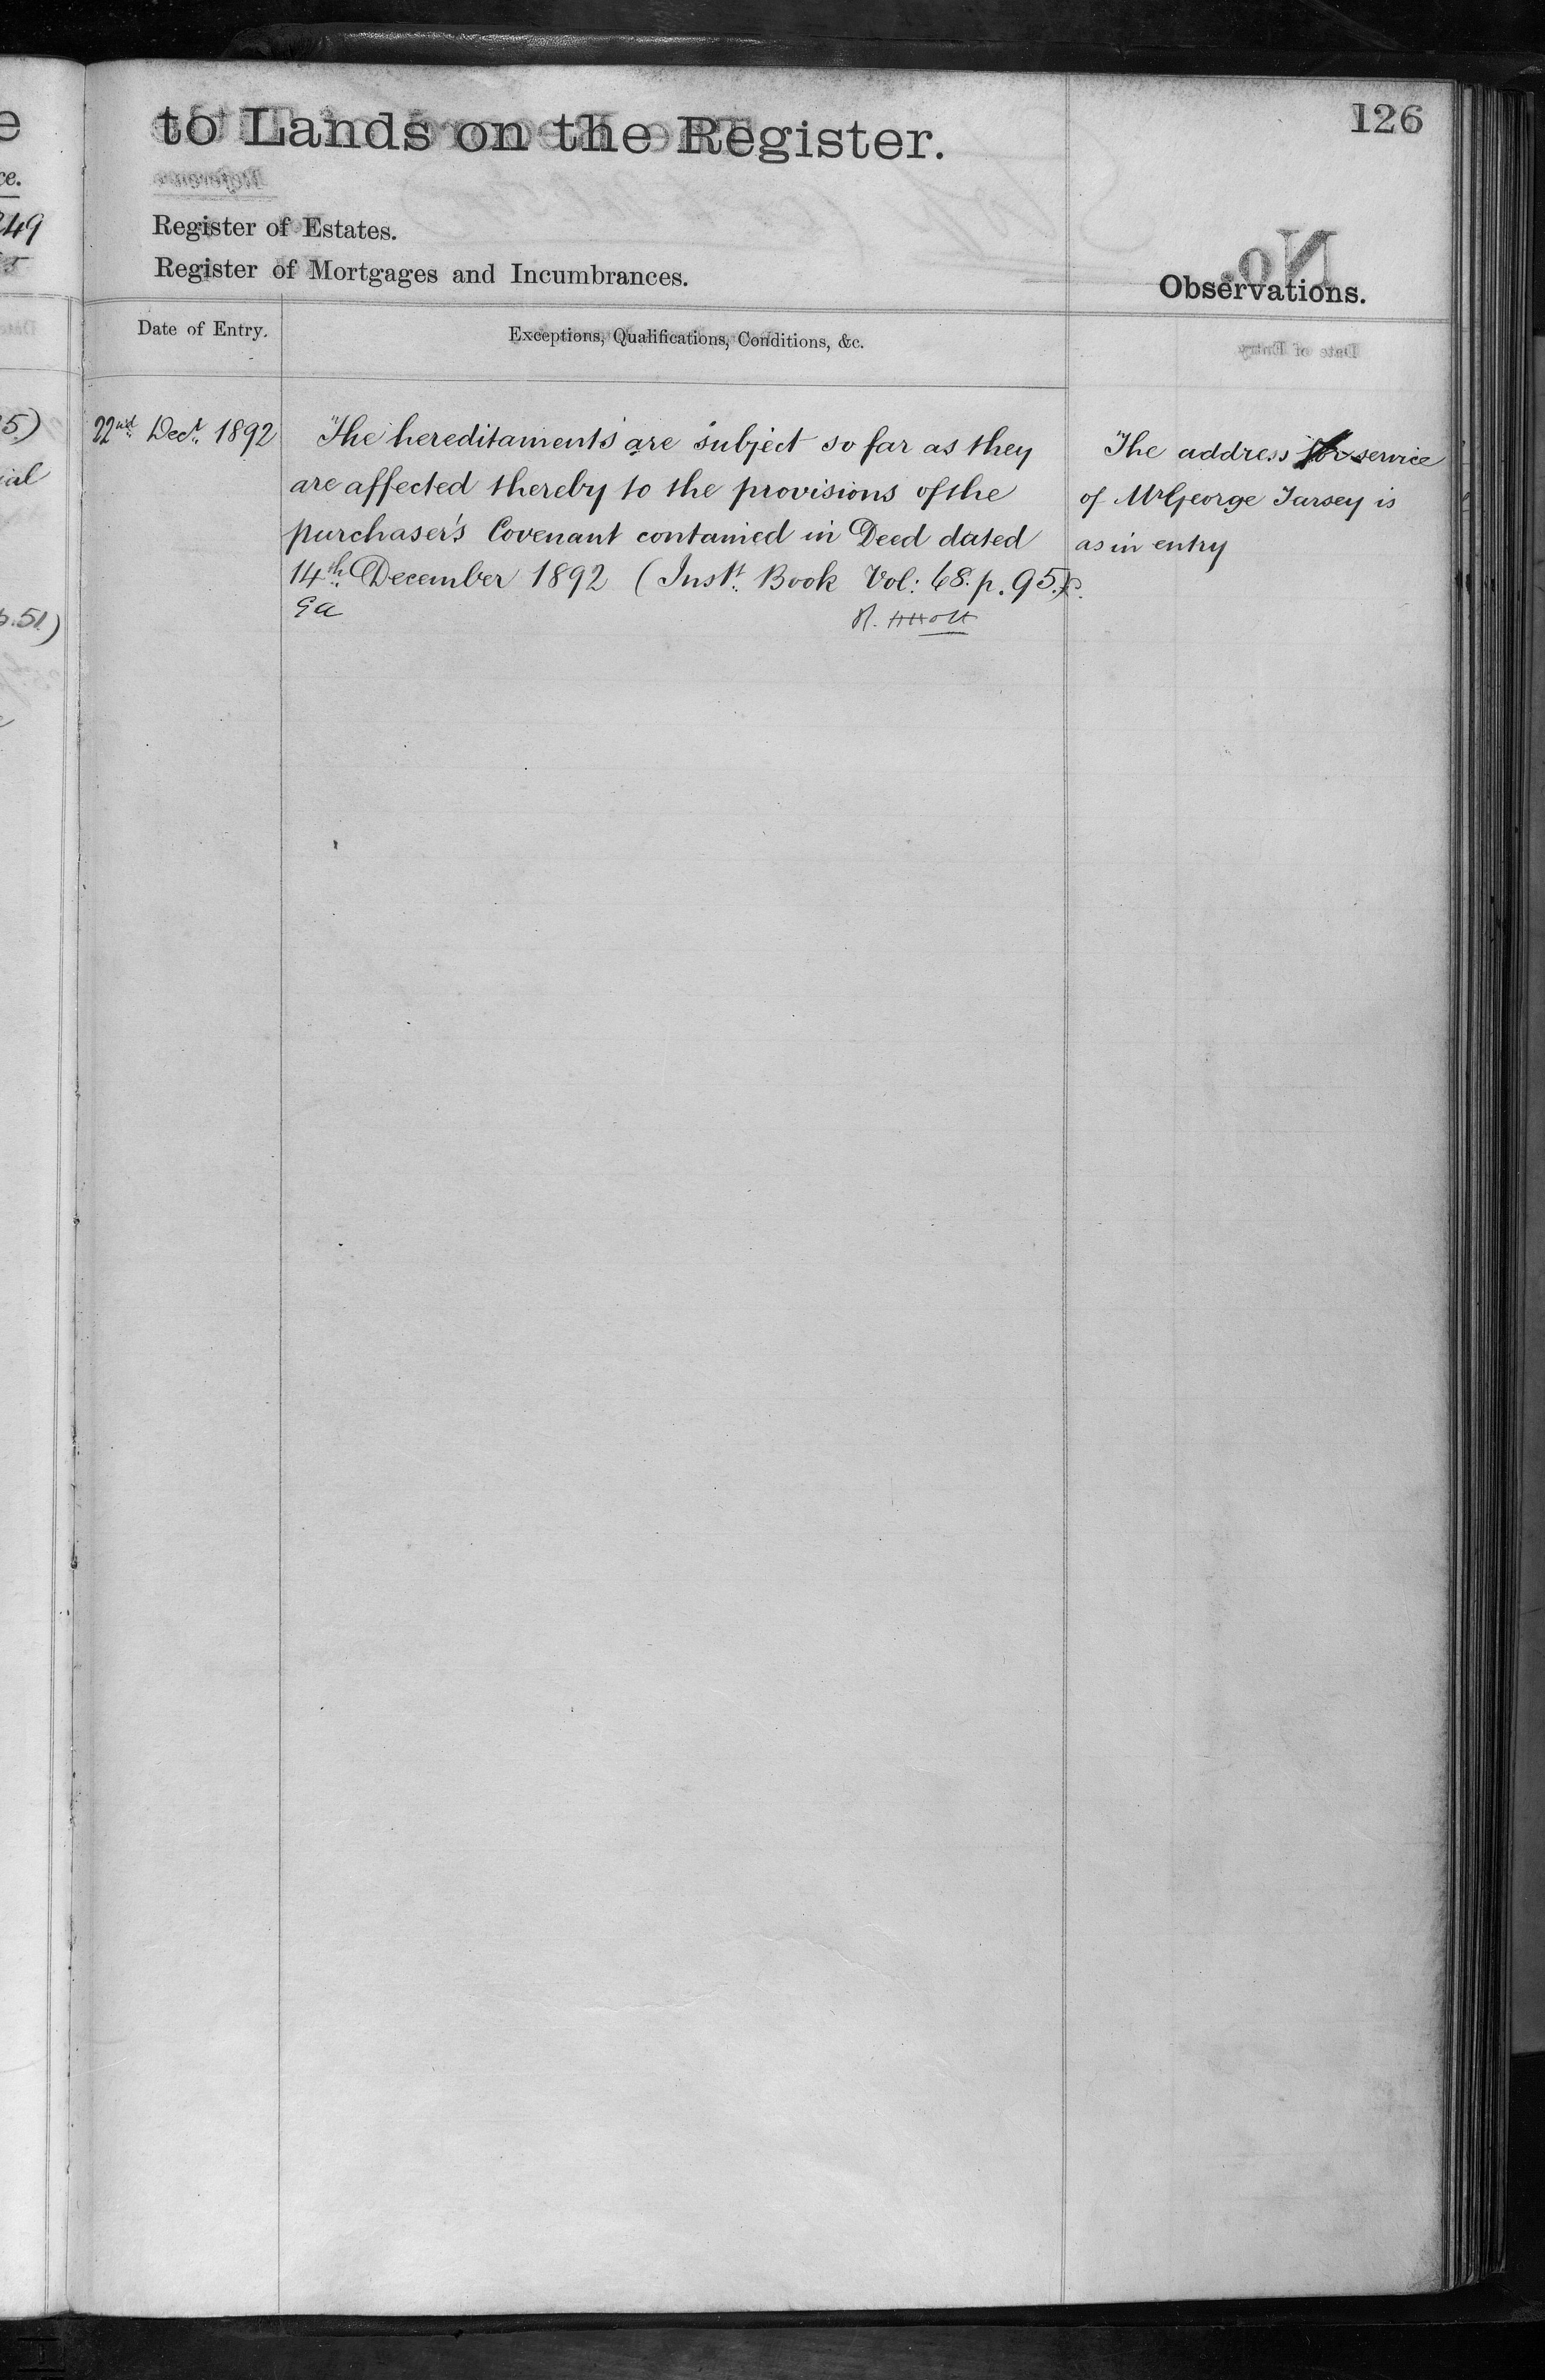 126
to Lands on the Register.
Register of Estates.
Register of Mortgages and Incumbrances.
Observations.
Date of Entry.
Exceptions, Qualifications, Conditions, &c.
22nd Decr. 1892
The hereditaments are subject so far as they
are affected thereby to the provisions of the
purchaser's Covenant contained in Deed dated
14th December 1892 (Inst. Book Vol: 68. p. 95.)
The address for service
of Mr George Tarsey is
as in entry
249
5)
ial
p.51)